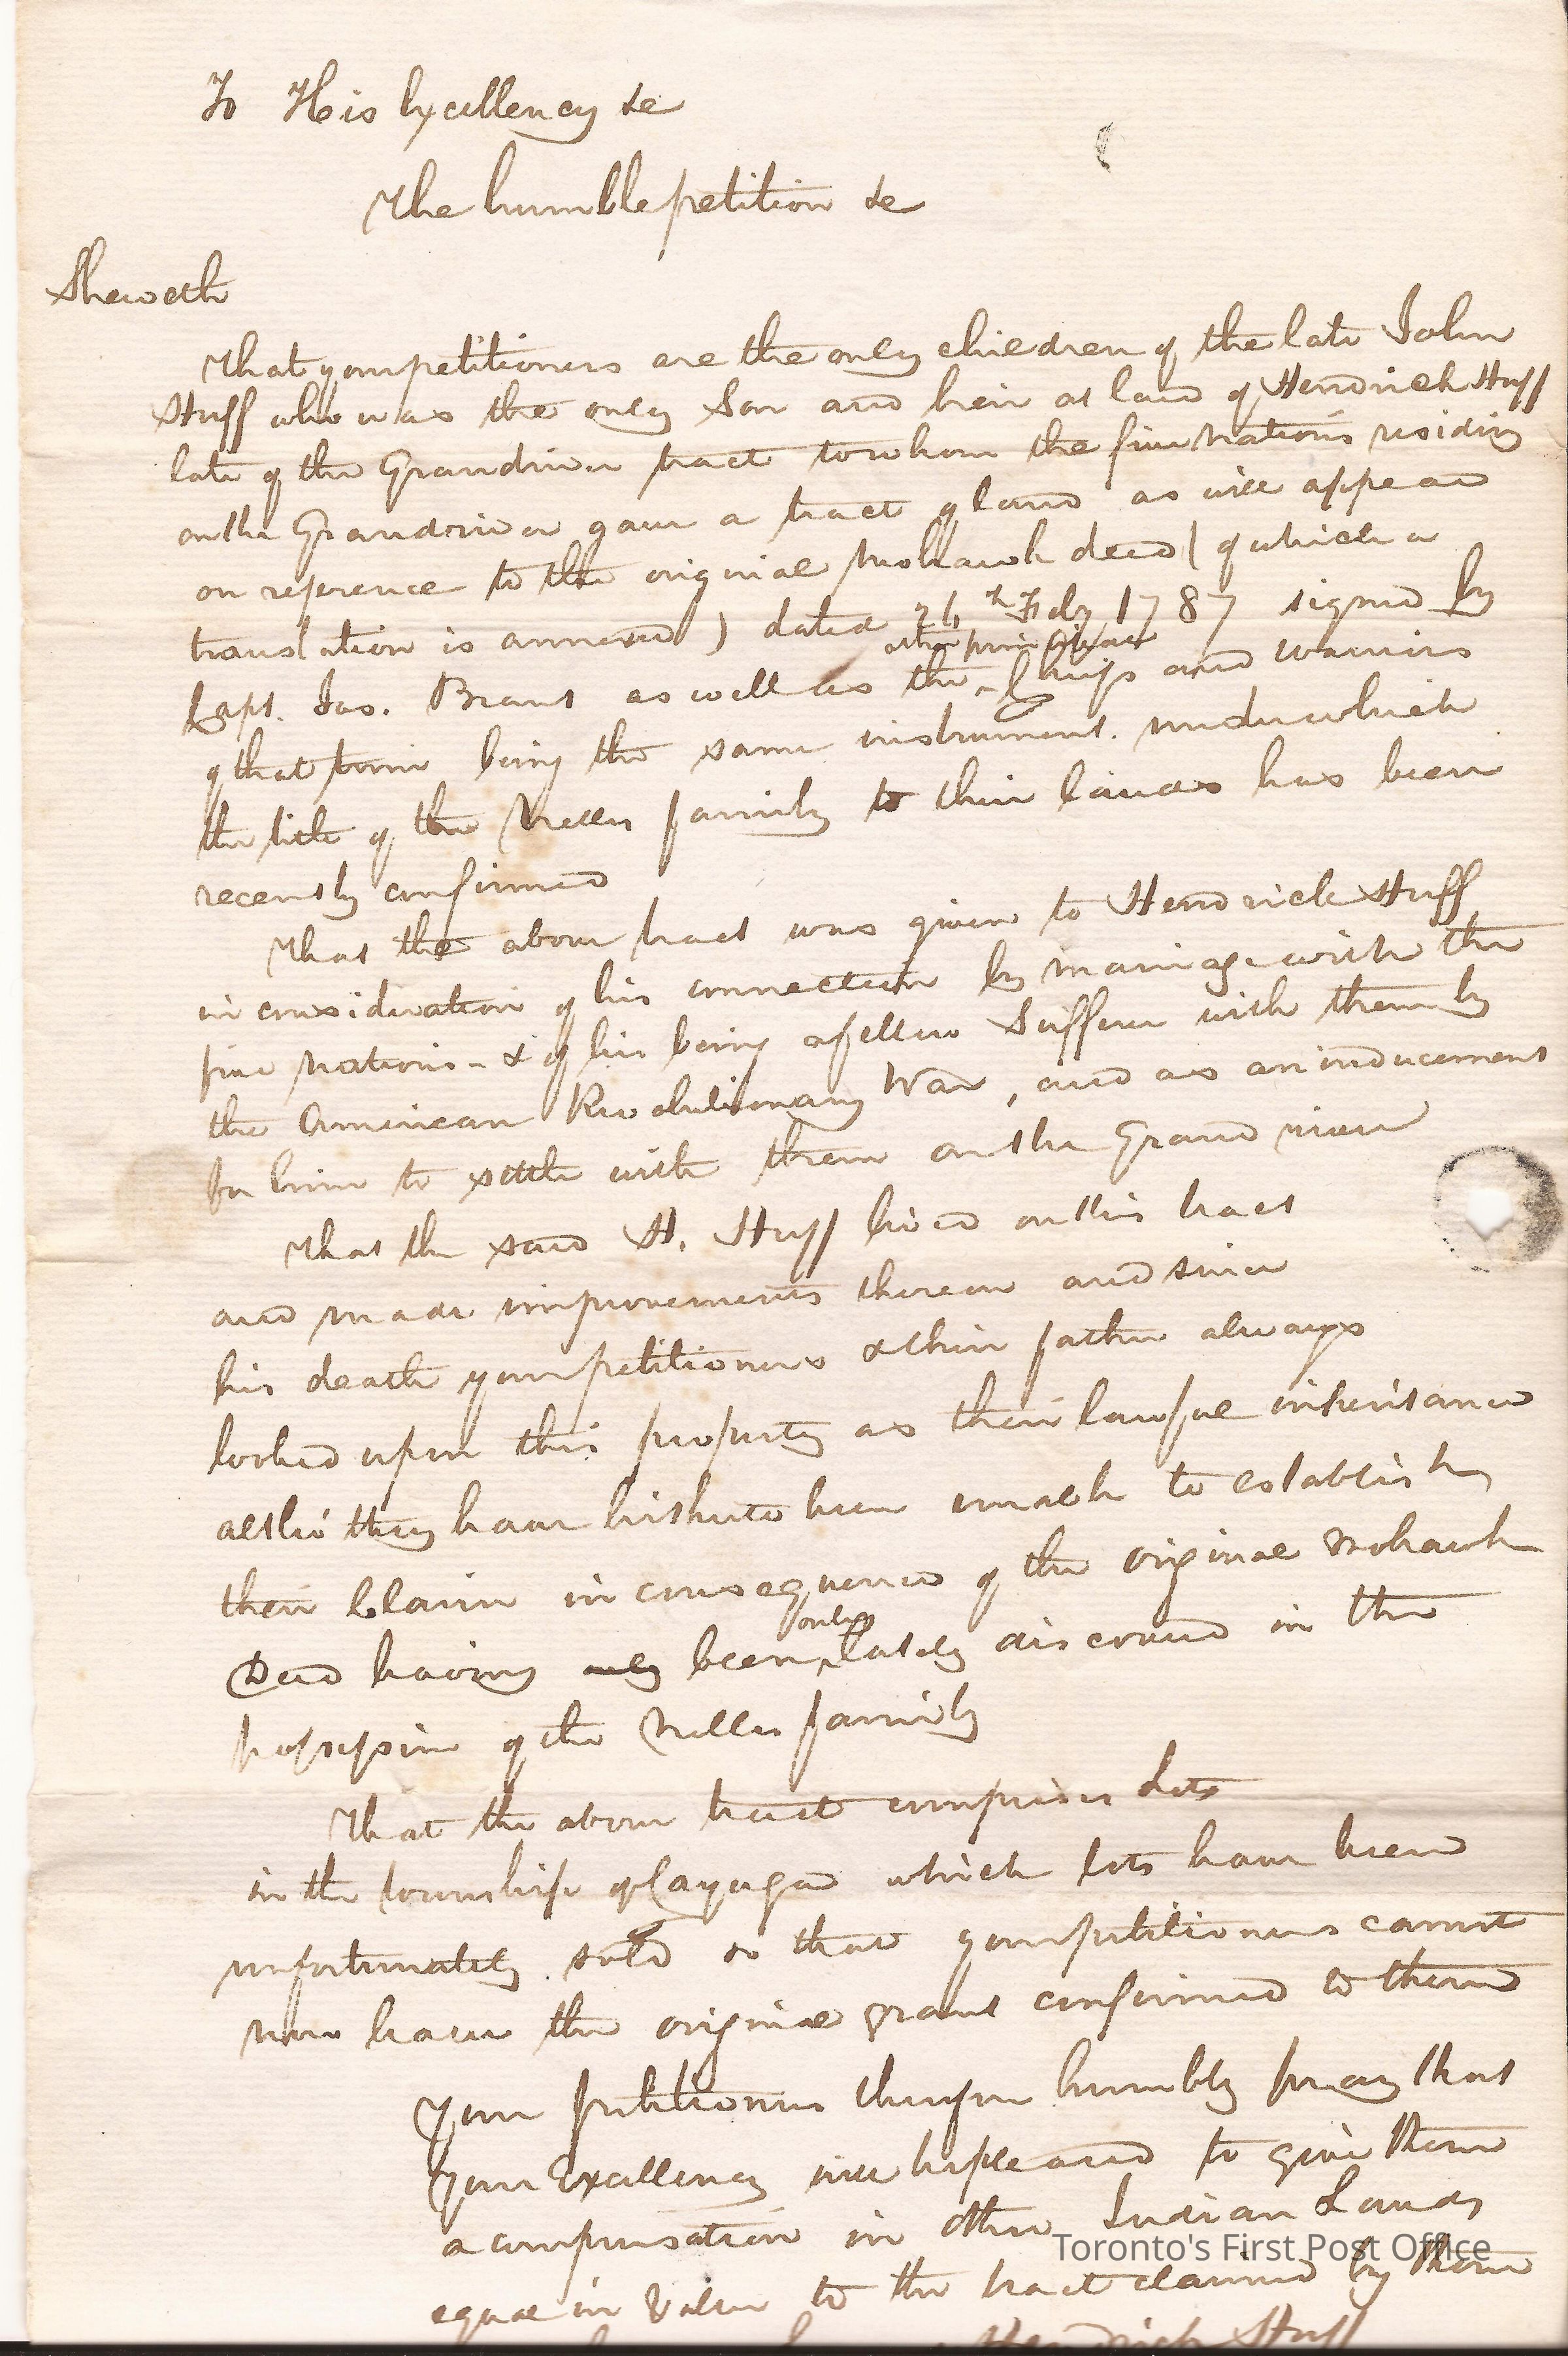 To His Excellency &c
The humble petition &c
Sheweth
That your petitioners are the only children of the late John
Huff who was the only Son and heir at law of Hendrick Huff
late of the Grand river tract to whom the five Nations residing
on the Grand river gave a tract of land as will appear
on reference to the original Mohawk deed ( of which a
translation is annexed ) dated 26th Feby 1787 signed by
other principal
Capt. Jos. Brant as well as the Chiefs and warriors
of that time being the same instrument under which
the title of the Nelles family to their lands has been
recently confirmed
That the above tract was given to Hendrick Huff
in consideration of his connection by marriage with the
five Nations - & of his being a fellow Sufferer with them by
the American Revolutionary War, and as an inducement
for him to settle with them on the Grand river
That the said H. Huff lived on this tract
and made improvements thereon and since
his death your petitioners & their father always
looked upon this property as their lawful inheritance
altho' they have hitherto been unable to establish
their Claim in consequence of the original Mohawk
only
Deed having only been lately discovered in the
possession of the Nelles family
That the above tract comprises Lots
in the township of Cayuga which lots have been
unfortunately sold so that your petitioners cannot
now have the original grant confirmed to them
Your petitioners therefore humbly pray that
Your Excellency will be pleased to give them
a compensation in other Indian Lands
equal in value to the tract claimed by them
Hendrick Huff
Toronto's First Post Office